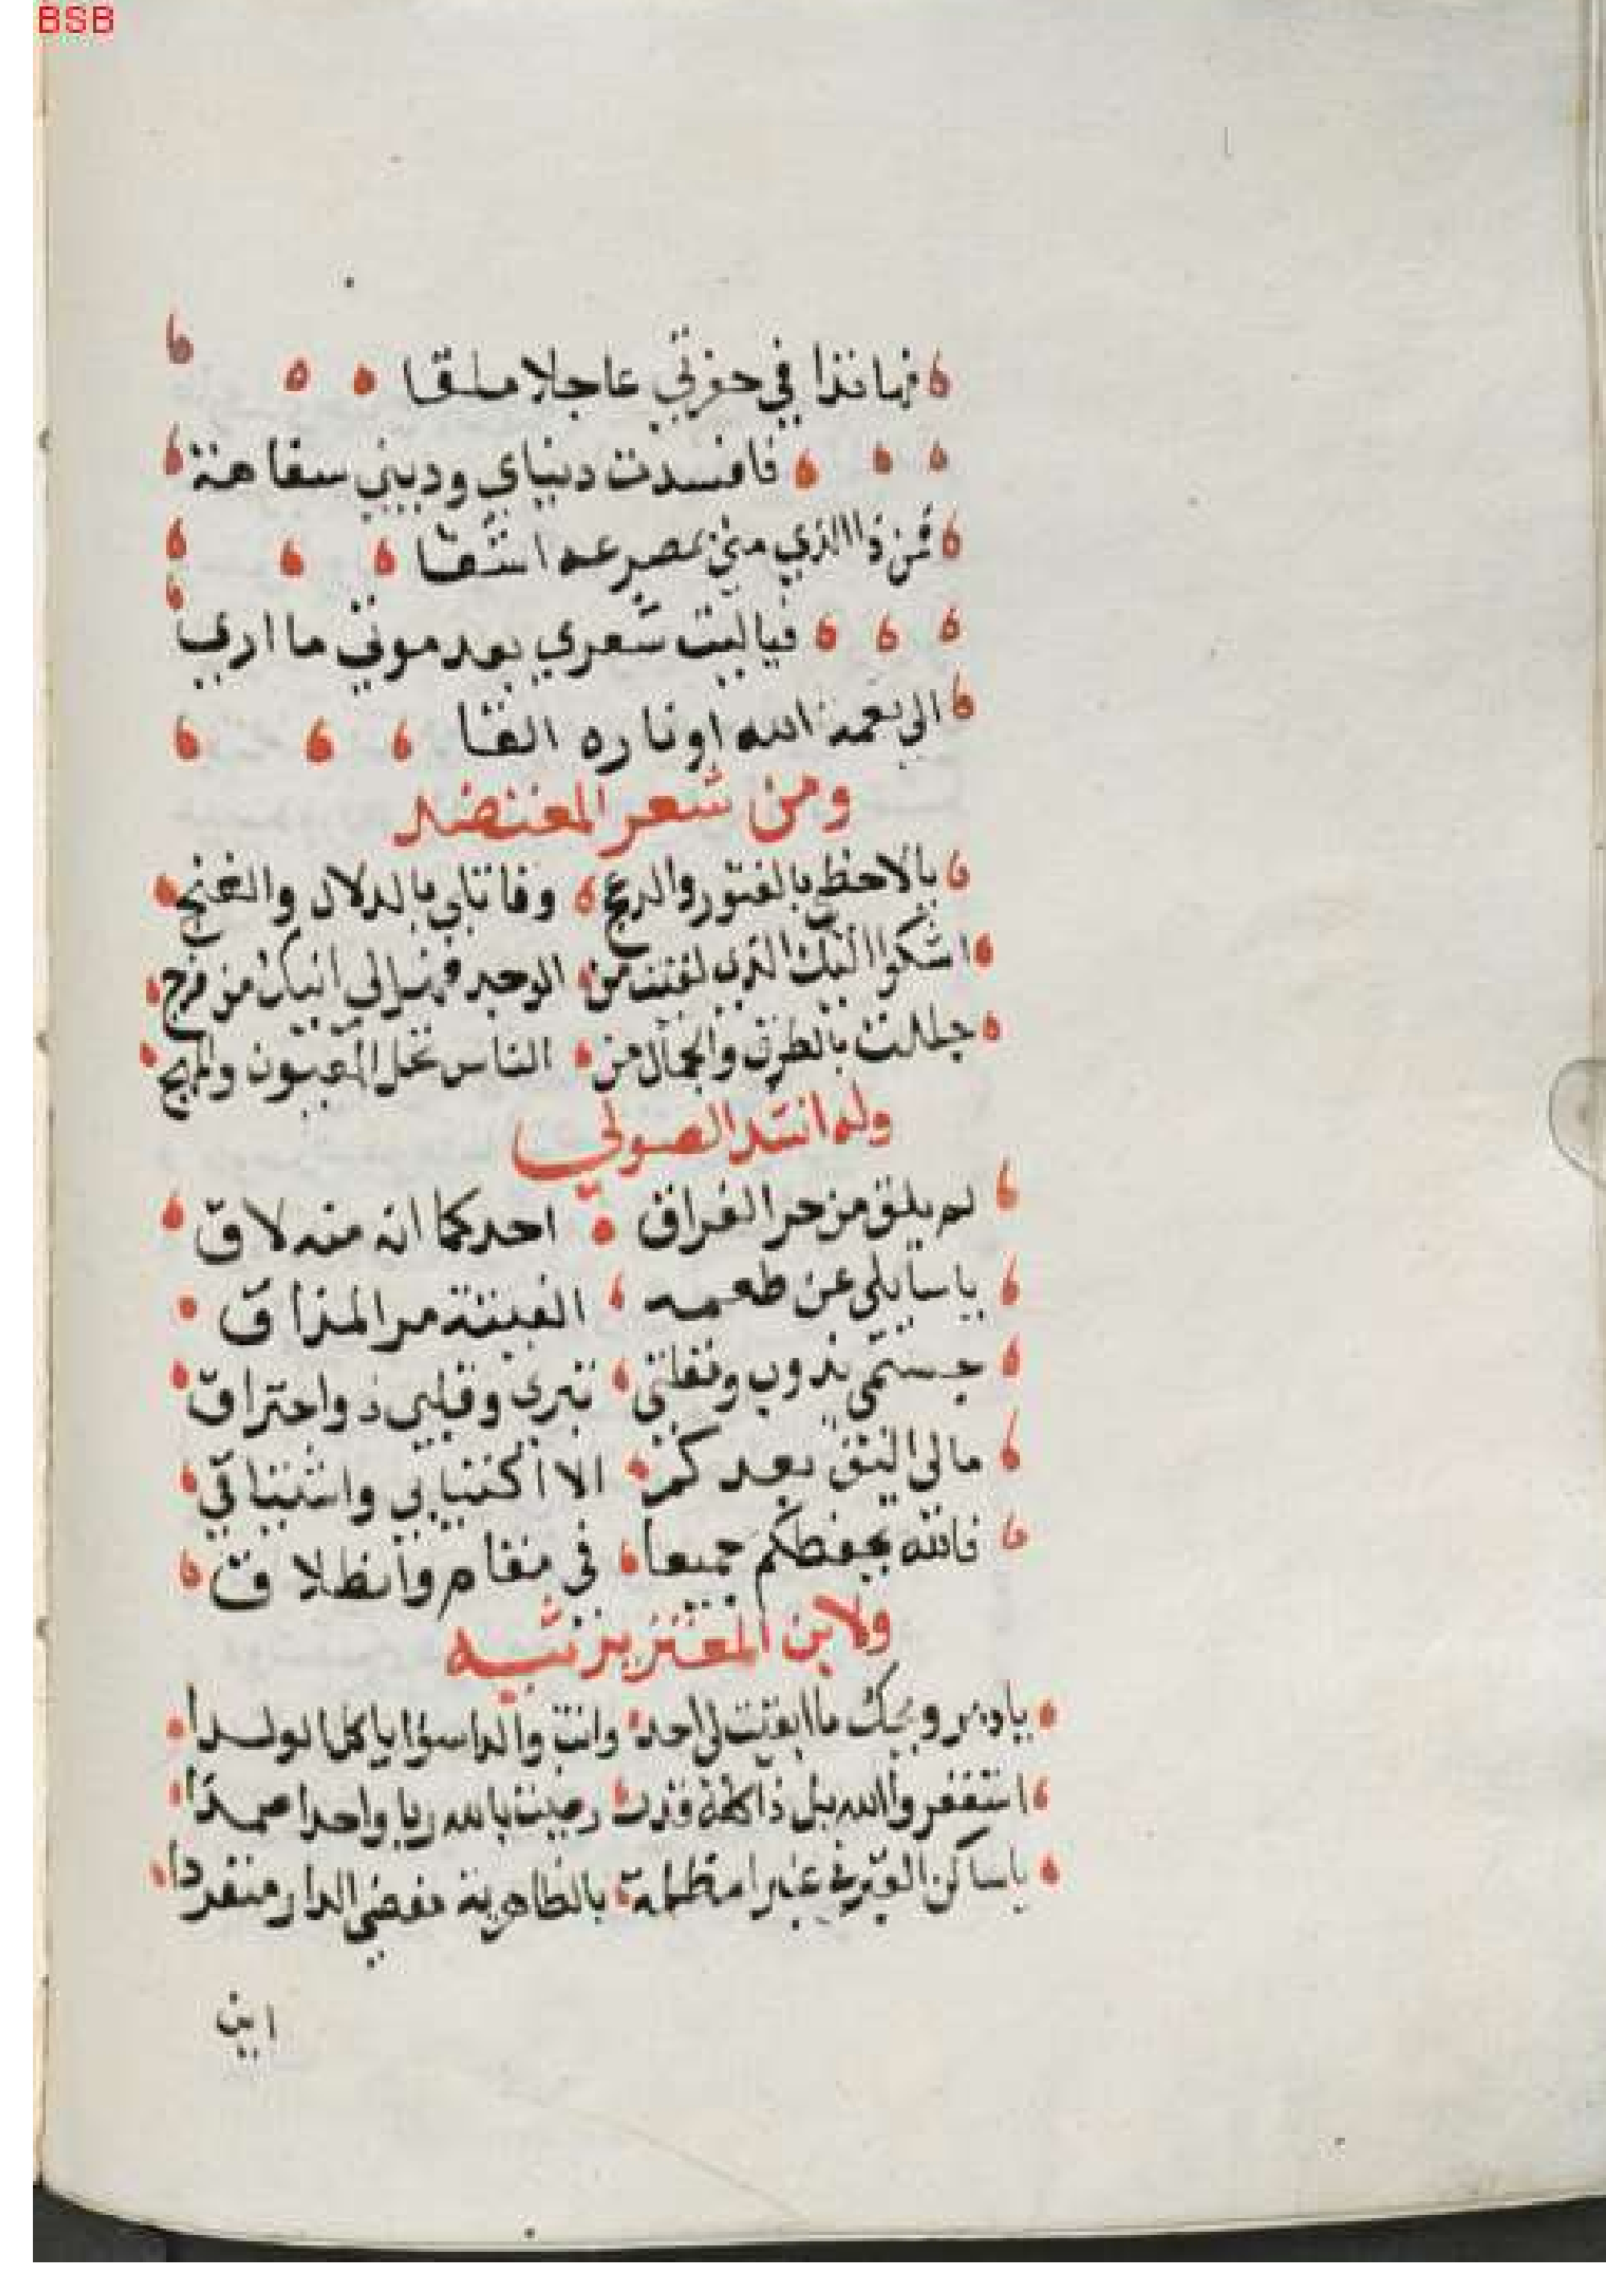 BSB
فها نذا في حفرتي عاجلا ملقا
فافسدت دنياي وديني سفاهة
فمن ذا الذي مني بمصرعه اشقا
فياليت شعري بعد موتي ما اري
الي نعمة الله او ناره القا
ومن شعر المعتضد
يالاحظي بالفتور والدعج وقاتلي بالدلال والغنج
اشكوا اليك الذي لقيت من الوجد فهل لي اليك من فرج
حللت بالطرف والجمال من الناس محل العيون والمهج
وله انشد الصولي
لم يلق من حر الفراق احد كما انه منه لاق
ياسايلي عن طعمه الفيته مر المذاق
جسمي يذوب ومقلتي تبري وقلبي ذواحتراق
مالي اليق بعدكم الا اكتيابي واشتياقي
فالله يحفظكم جميعا في مقام وانطلاق
ولابن المعتز يرثيه
يادهر ويحك ما ابقيت لي احدا وانت والد اسؤ اياكل الولدا
استغفر والله بل ذا كله قدر رضيت بالله ربا واحدا صمدا
ياساكن القبر في غبرا مظلمة بالطاهرية مقضي الدار منفردا
اين